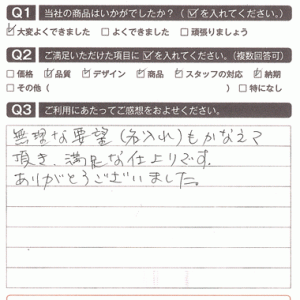 Q1 当社の商品はいかがでしたか？（☑を入れてください。）
☑大変よくできました □よくできました □頑張りましょう
Q2 ご満足いただけた項目に☑を入れてください。（複数回答可）
□価格 ☑品質 ☑デザイン ☑商品 ☑スタッフの対応 ☑納期
□その他（ ） □特になし
Q3 ご利用にあたってご感想をおよせください。
無理な要望（名入れ）もかなえて
頂き、満足な仕上りです。
ありがとうございました。